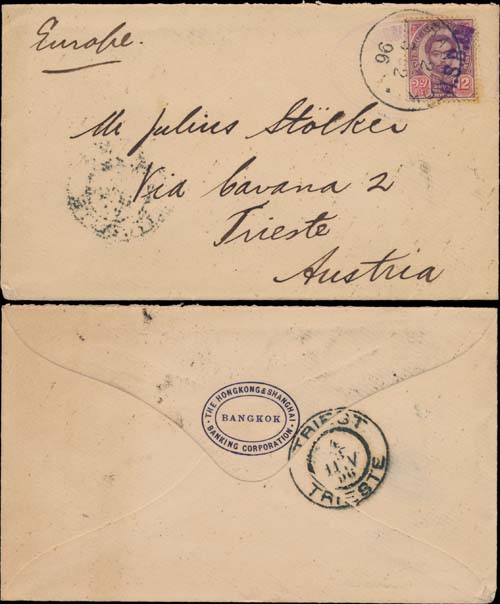 Europe.
96
12
Mr Julius Stölker
Via Cavana 2
Trieste
Austria
THE HONGKONG & SHANGHAI
BANGKOK
BANKING CORPORATION
TRIEST
TRIESTE